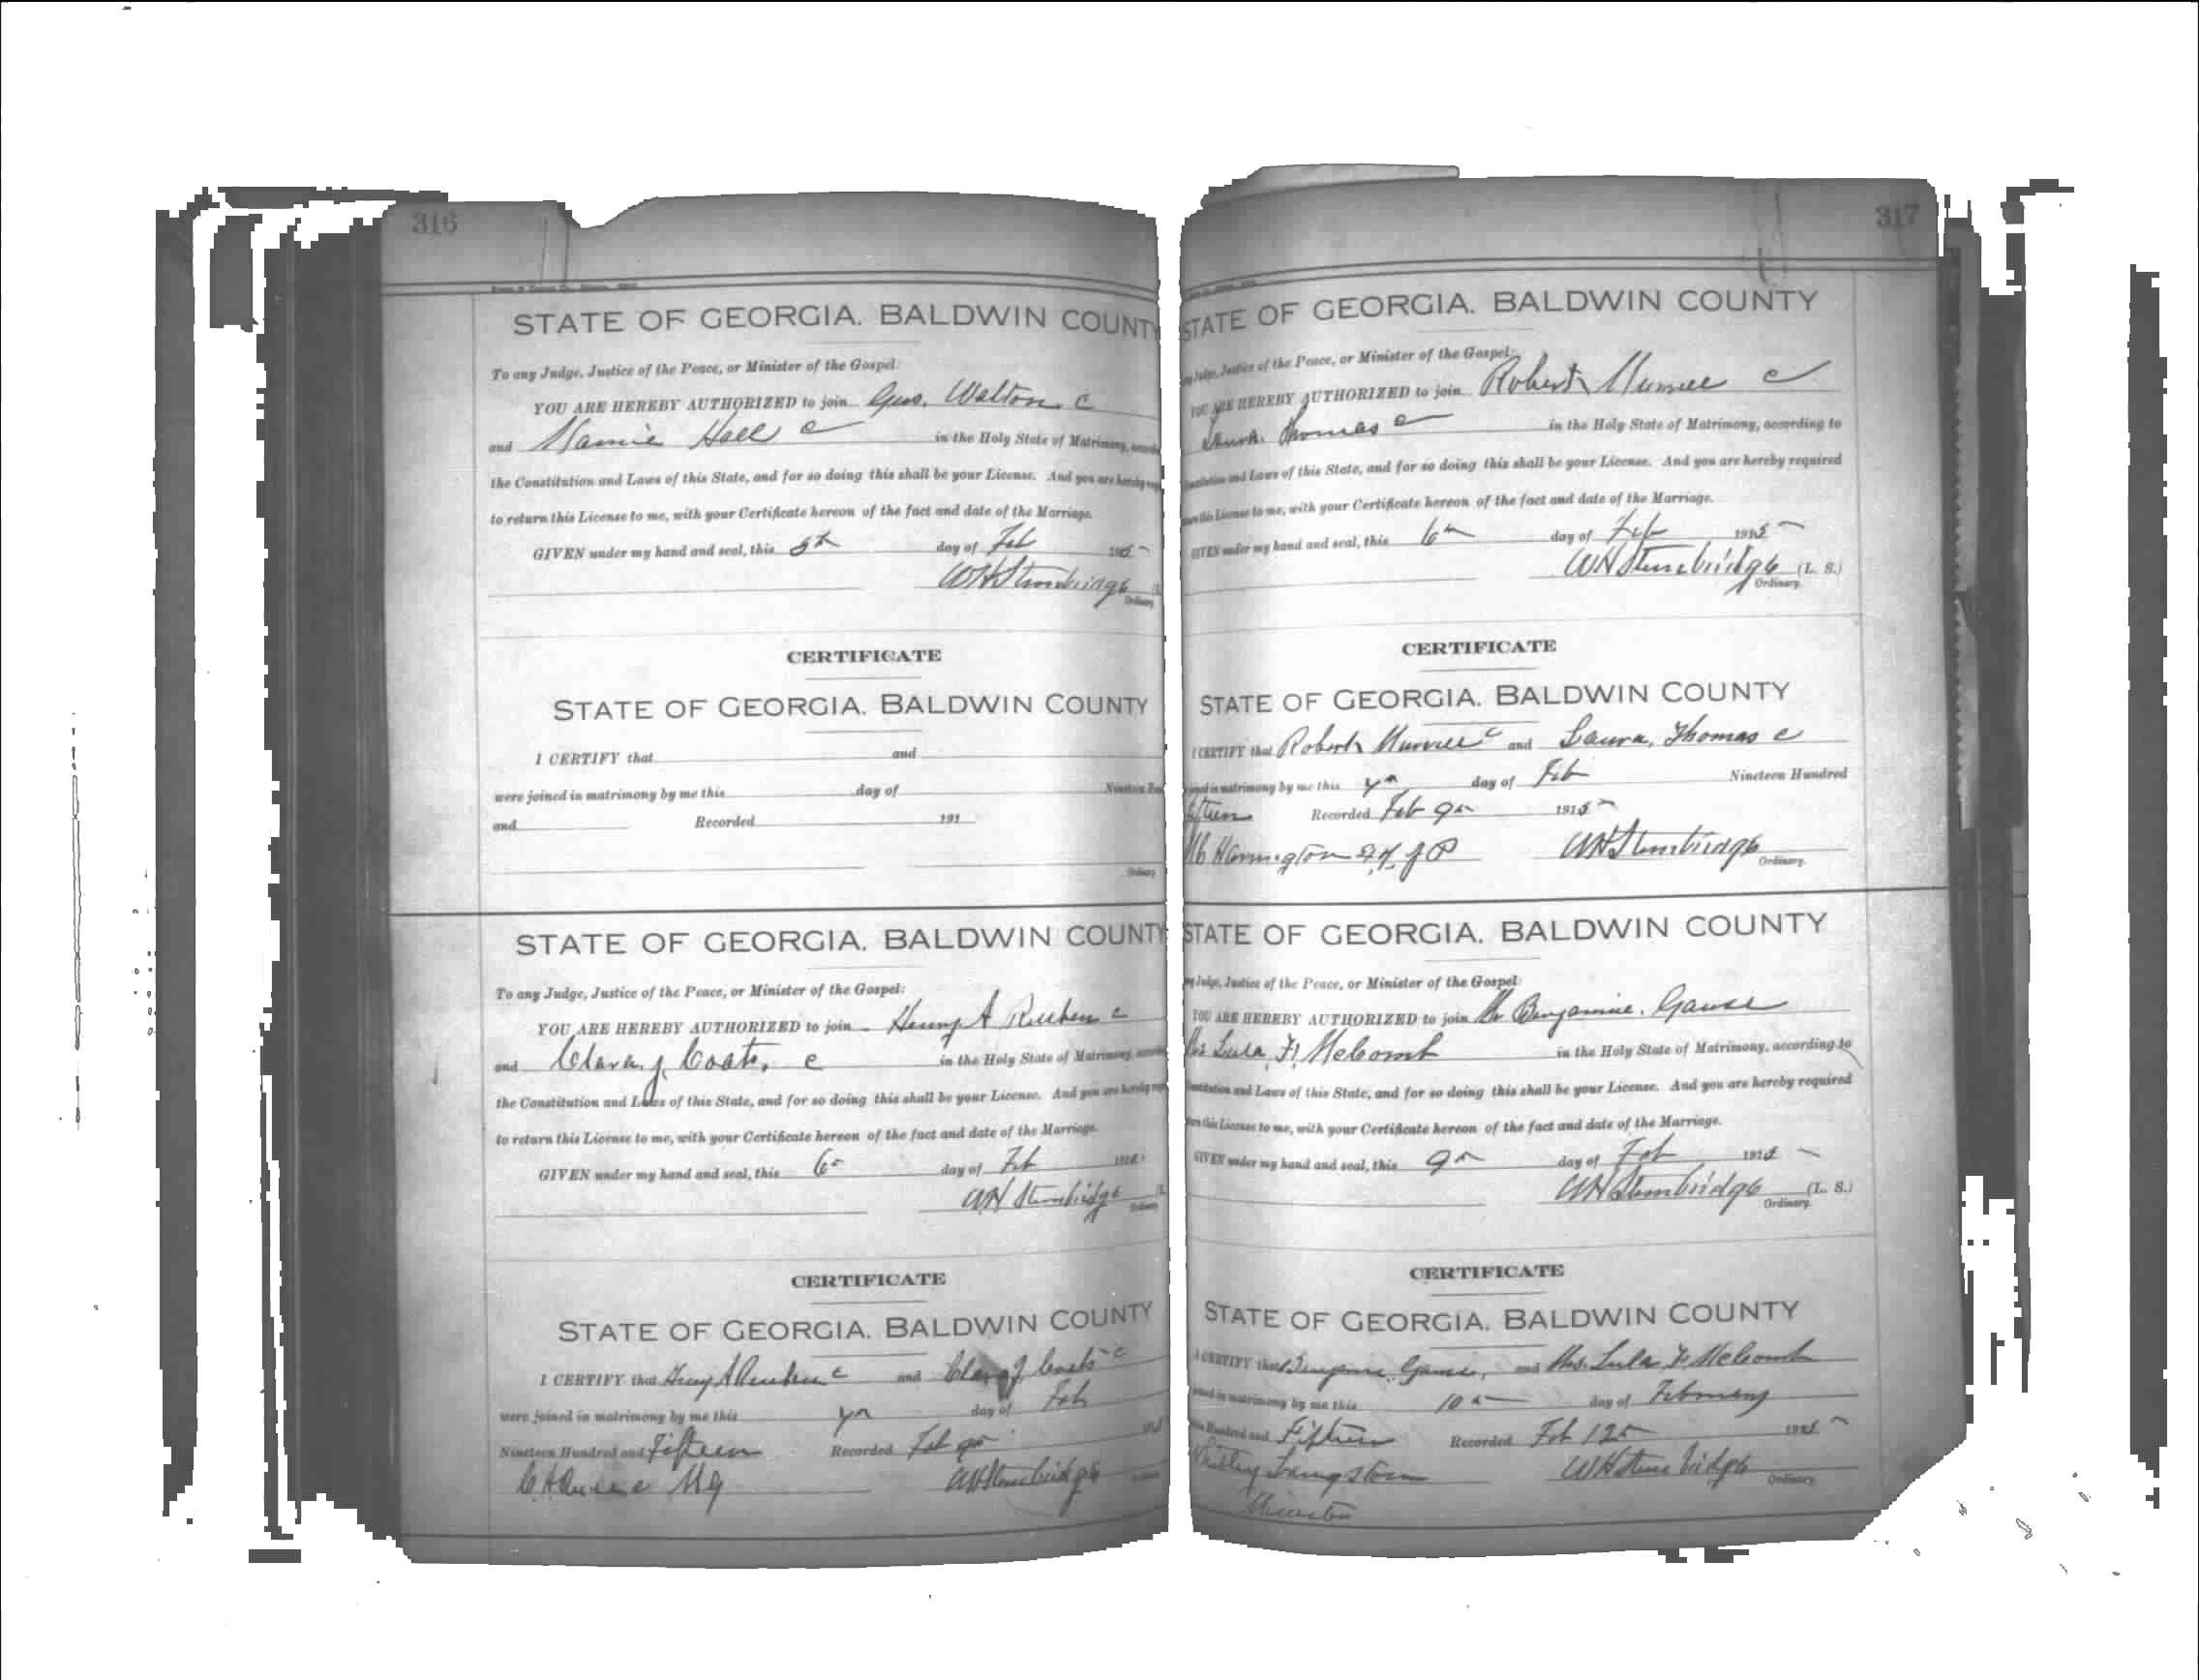 316
STATE OF GEORGIA. BALDWIN COUNTY
To any Judge, Justice of the Peace, or Minister of the Gospel:
YOU ARE HEREBY AUTHORIZED to join Walton. c
and Hall c in the Holy State of Matrimony,
the Constitution and Laws of this State, and for so doing this shall be your License. And you are hereby
to return this License to me, with your Certificate hereon of the fact and date of the Marriage.
GIVEN under my hand and seal, this day of Feb
WHStembridge
Ordinary
CERTIFICATE
STATE OF GEORGIA. BALDWIN COUNTY
I CERTIFY that and
were joined in matrimony by me this day of Nineteen
and Recorded 191
Ordinary
STATE OF GEORGIA. BALDWIN COUNTY
To any Judge, Justice of the Peace, or Minister of the Gospel:
YOU ARE HEREBY AUTHORIZED to join Henry A Reuben c
and Clara J. c in the Holy State of Matrimony,
the Constitution and Laws of this State, and for so doing this shall be your License. And you are hereby
to return this License to me, with your Certificate hereon of the fact and date of the Marriage.
GIVEN under my hand and seal, this 6th day of Feb
WH Stembridge
Ordinary
CERTIFICATE
STATE OF GEORGIA. BALDWIN COUNTY
I CERTIFY that Henry A Reuben c and Clara J c
were joined in matrimony by me this day of Feb
Nineteen Hundred and Fifteen Recorded Feb 9th
WHStembridge
317
STATE OF GEORGIA. BALDWIN COUNTY
Judge, Justice of the Peace, or Minister of the Gospel:
YOU ARE HEREBY AUTHORIZED to join Robert c
Thomas c in the Holy State of Matrimony, according to
and Laws of this State, and for so doing this shall be your License. And you are hereby required
this License to me, with your Certificate hereon of the fact and date of the Marriage.
GIVEN under my hand and seal, this 6th day of Feb 1915
WHStembridge (L. S.)
Ordinary.
CERTIFICATE
STATE OF GEORGIA. BALDWIN COUNTY
I CERTIFY that Robert c and Laura Thomas c
in matrimony by me this day of Feb Nineteen Hundred
Recorded Feb 9th 1915
WHStembridge
Ordinary.
STATE OF GEORGIA. BALDWIN COUNTY
Judge, Justice of the Peace, or Minister of the Gospel:
YOU ARE HEREBY AUTHORIZED to join Mr Benjamine Gause
Lula F. in the Holy State of Matrimony, according to
and Laws of this State, and for so doing this shall be your License. And you are hereby required
this License to me, with your Certificate hereon of the fact and date of the Marriage.
GIVEN under my hand and seal, this 9th day of Feb 1915
WHStembridge (L. S.)
Ordinary.
CERTIFICATE
STATE OF GEORGIA. BALDWIN COUNTY
I CERTIFY that and Mrs. Lula F
in matrimony by me this 10th day of February
Hundred and Fifteen Recorded Feb 12th 1915
Langston WHStembridge
Ordinary.
Minister